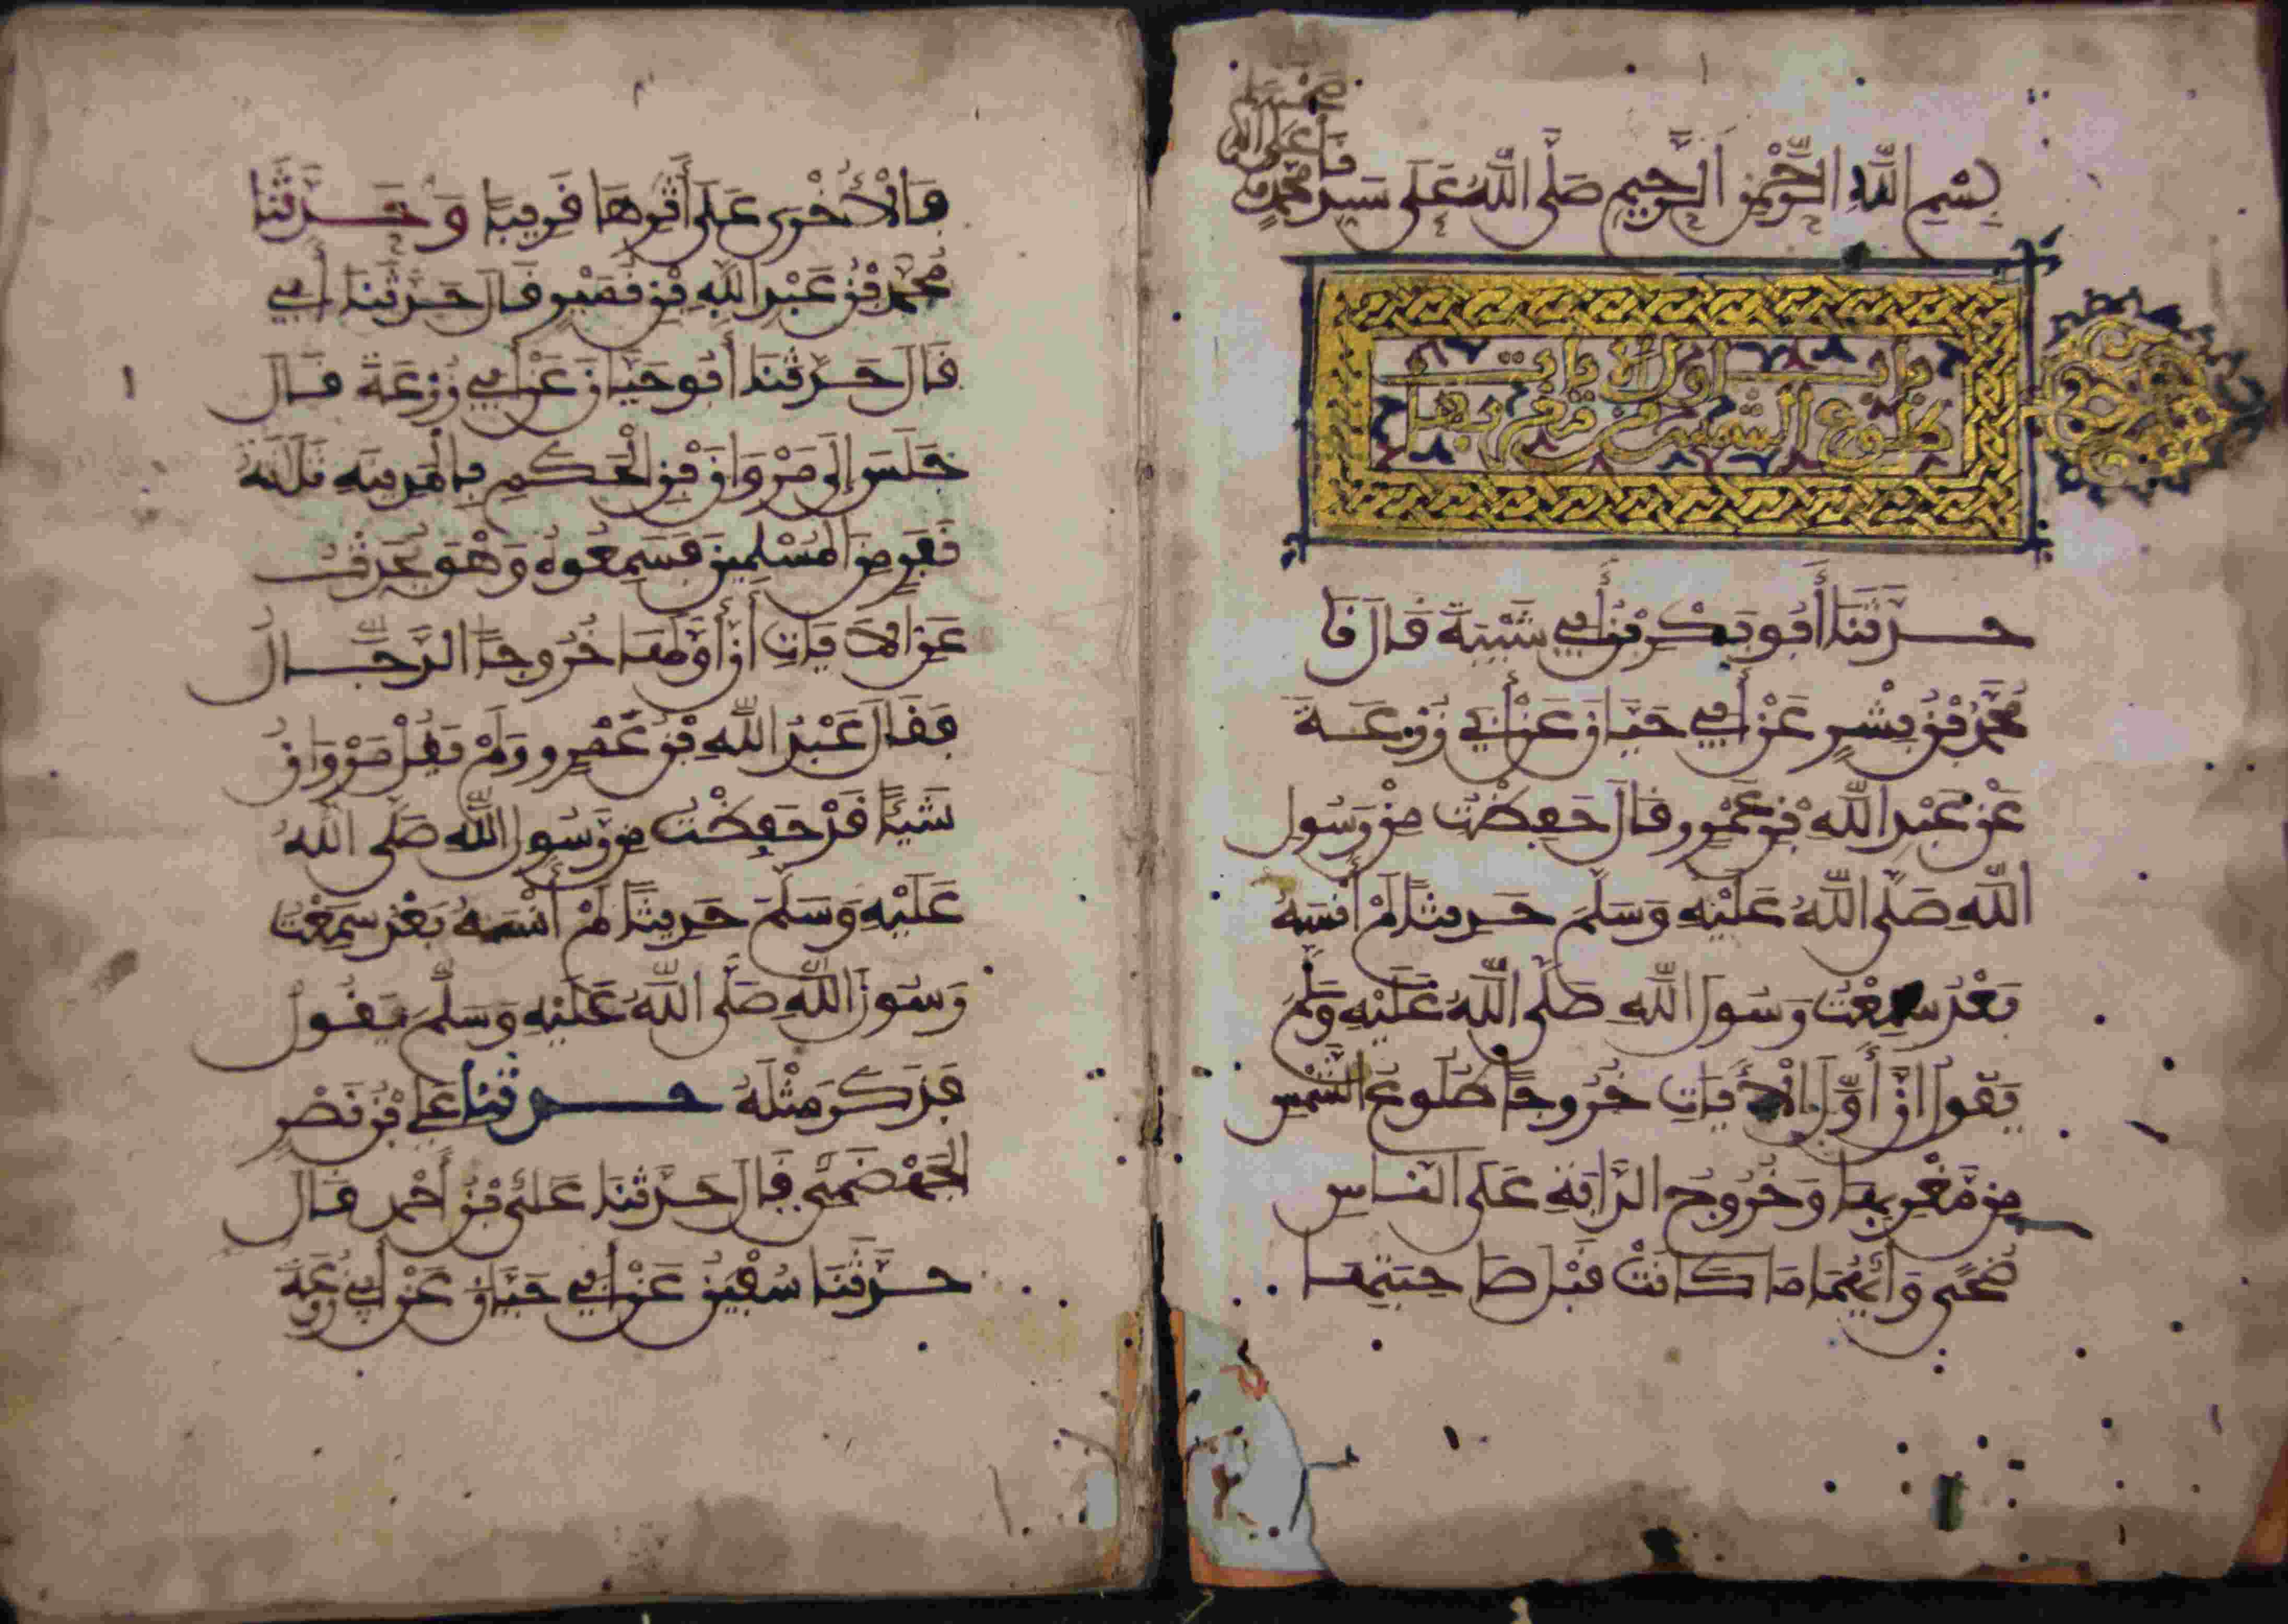 بِسْمِ اللَّهِ الرَّحْمٰنِ الرَّحِيمِ صَلَّى اللَّهُ عَلَى سَيِّدِنَا مُحَمَّدٍ
باب أول الآيات
طلوع الشمس من مغربها
حَدَّثَنَا أَبُو بَكْرِ بْنُ أَبِي شَيْبَةَ قَالَ نَا
مُحَمَّدُ بْنُ بِشْرٍ عَنْ أَبِي حَيَّانَ عَنْ أَبِي زُرْعَةَ
عَنْ عَبْدِ اللَّهِ بْنِ عَمْرٍو قَالَ حَفِظْتُ مِنْ رَسُولِ
اللَّهِ صَلَّى اللَّهُ عَلَيْهِ وَسَلَّمَ حَدِيثًا لَمْ أَنْسَهُ
بَعْدُ سَمِعْتُ رَسُولَ اللَّهِ صَلَّى اللَّهُ عَلَيْهِ وَسَلَّمَ
يَقُولُ إِنَّ أَوَّلَ الْآيَاتِ خُرُوجًا طُلُوعُ الشَّمْسِ
مِنْ مَغْرِبِهَا وَخُرُوجُ الدَّابَّةِ عَلَى النَّاسِ
ضُحًى وَأَيُّهُمَا مَا كَانَتْ قَبْلَ صَاحِبَتِهَا
فَالْأُخْرَى عَلَى أَثَرِهَا قَرِيبًا وَحَدَّثَنَا
مُحَمَّدُ بْنُ عَبْدِ اللَّهِ بْنِ نُمَيْرٍ قَالَ حَدَّثَنَا أَبِي
قَالَ حَدَّثَنَا أَبُو حَيَّانَ عَنْ أَبِي زُرْعَةَ قَالَ
جَلَسَ إِلَى مَرْوَانَ بْنِ الْحَكَمِ بِالْمَدِينَةِ ثَلَاثَةُ
نَفَرٍ مِنَ الْمُسْلِمِينَ فَسَمِعُوهُ وَهْوَ يُحَدِّثُ
عَنِ الْآيَاتِ أَنَّ أَوَّلَهَا خُرُوجًا الدَّجَّالُ
فَقَالَ عَبْدُ اللَّهِ بْنُ عَمْرٍو وَلَمْ يَقُلْ مَرْوَانُ
شَيْئًا قَدْ حَفِظْتُ مِنْ رَسُولِ اللَّهِ صَلَّى اللَّهُ
عَلَيْهِ وَسَلَّمَ حَدِيثًا لَمْ أَنْسَهُ بَعْدُ سَمِعْتُ
رَسُولَ اللَّهِ صَلَّى اللَّهُ عَلَيْهِ وَسَلَّمَ يَقُولُ
فَذَكَرَ مِثْلَهُ حَدَّثَنَا عَلِيُّ بْنُ نَصْرٍ
الْجَهْضَمِيُّ قَالَ حَدَّثَنَا عَلِيُّ بْنُ أَحْمَدَ قَالَ
حَدَّثَنَا سُفْيَنُ عَنْ أَبِي حَيَّانَ عَنْ أَبِي زُرْعَةَ